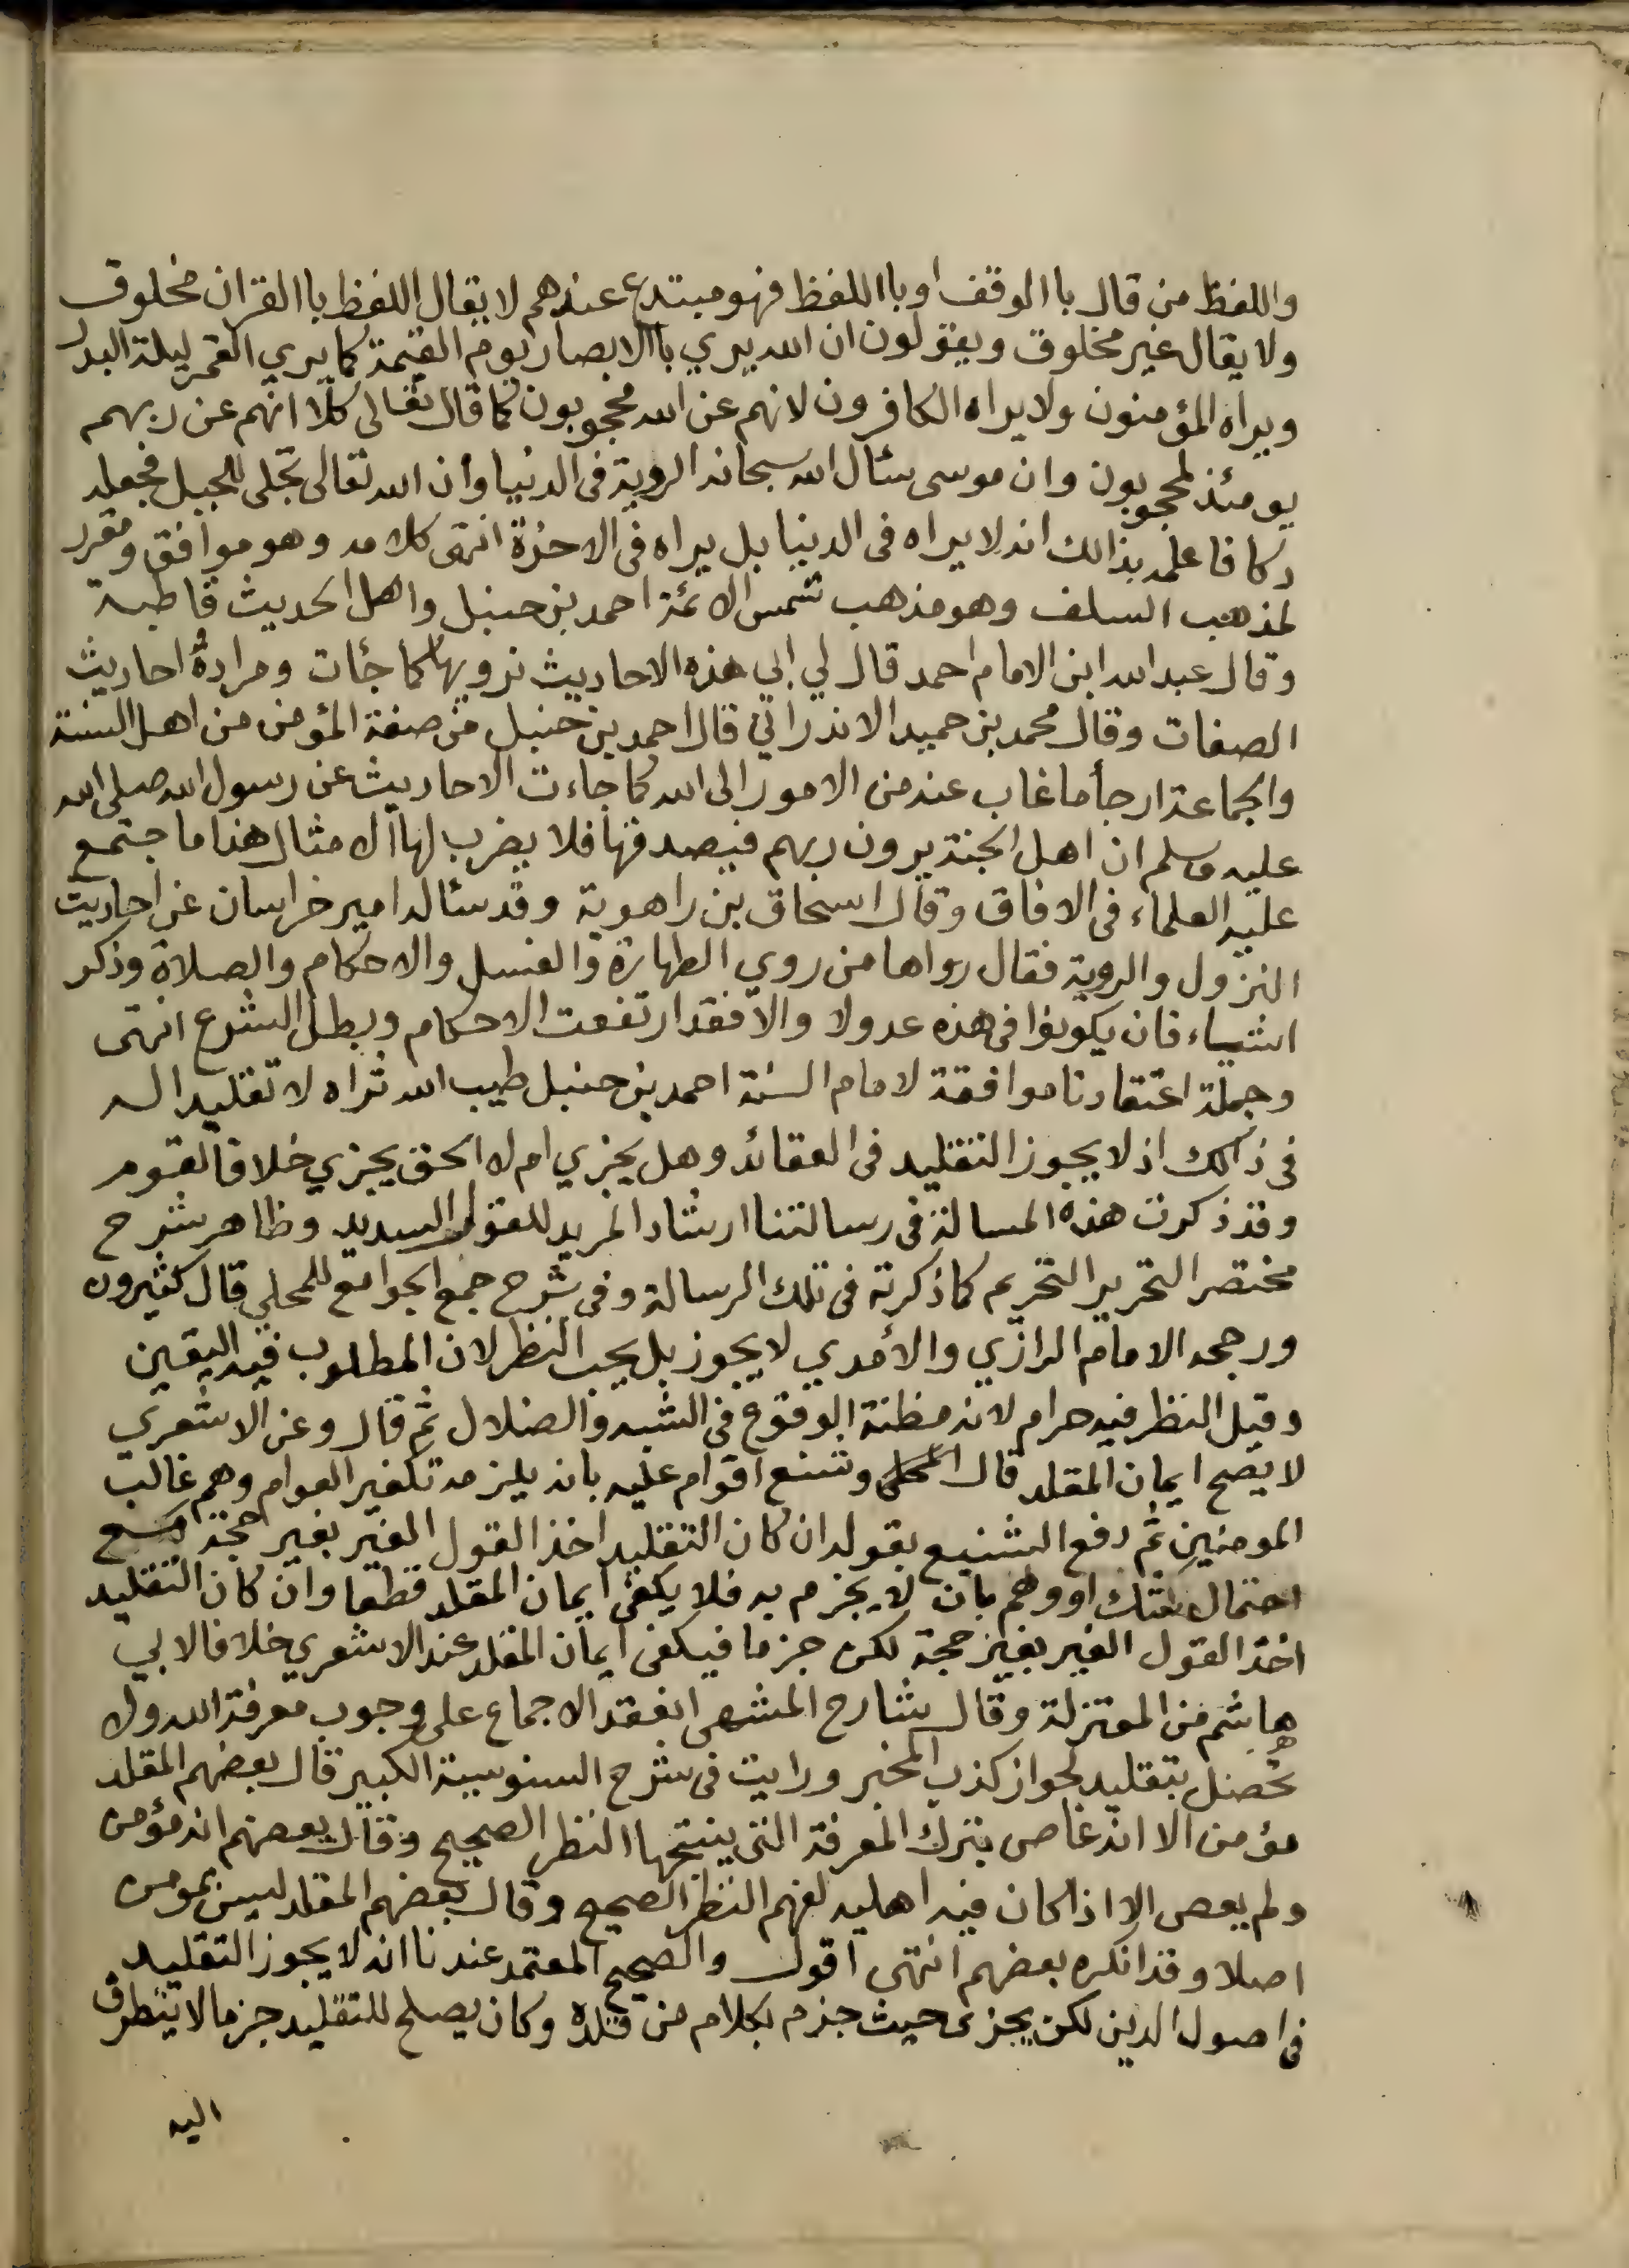 واللفظ من قال باالوقف او باللفظ فهو مبتدع عندهم لا يقال اللفظ باالقران مخلوق
ولا يقال غير مخلوق ويقولون ان الله يري باالابصار يوم القيمة كما يري القمر ليلة البدر
ويراه المؤمنون ولا يراه الكافرون لانهم عن الله محجوبون كما قال تعالى كلا انهم عن ربهم
يومئذ لمحجوبون وان موسى سئال الله سبحانه الروية في الدنيا وان الله تعالى تجلى للجبل فجعله
دكا فاعلمه بذالك انه لا يراه في الدنيا بل يراه في الاخرة انتهى كلامه وهو موافق ومقرر
لمذهب السلف وهو مذهب شمس الائمة احمد بن حنبل واهل الحديث قاطبة
وقال عبد الله ابن الامام احمد قال لي ابي هذه الاحاديث نرويها كما جئات ومراده احاديث
الصفات وقال محمد بن حميد الاندراني قال احمد بن حنبل من صفة المؤمن من اهل السنة
والجماعة ارجأ ما غاب عنه من الامور الى الله كما جاءت الاحاديث عن رسول الله صلى الله
عليه وسلم ان اهل الجنة يرون ربهم فيصدقها فلا يضرب لها الامثال هذا ما جتمع
عليه العلماء في الافاق وقال اسحاق بن راهوية وقد سئاله امير خراسان عن احاديث
النزول والروية فقال رواها من روي الطهارة والغسل والاحكام والصلاة وذكر
اشياء فان يكونوا في هذه عدولا والا فقد ارتفعت الاحكام وبطل الشرع انتهى
وجملة اعتقادنا موافقة لامام السنة احمد بن حنبل طيب الله ثراه لا تقليدا له
في ذالك اذ لا يجوز التقليد في العقائد وهل يجزي ام لا الحق يجزي خلافا لقوم
وقد ذكرت هذه المسالة في رسالتنا ارشاد المريد للقول السديد وظاهر شرح
مختصر التحرير التحريم كما ذكرته في تلك الرسالة وفي شرح جمع الجوامع للمحلي قال كثيرون
ورجحه الامام الرازي والأمدي لا يجوز بل يجب النظر لان المطلوب فيه اليقين
وقيل النظر فيه حرام لانه مظنة الوقوع في الشبه والضلال ثم قال وعن الاشعري
لا يصح ايمان المقلد قال المحلي وشنع اقوام عليه بانه يلزمه تكفير العوام وهم غالب
المومنين ثم دفع التشنيع بقوله ان كان التقليد اخذ القول الغير بغير حجة مع
احتمال شك او وهم بان لا يجزم به فلا يكفي ايمان المقلد قطعا وان كان التقليد
اخذ القول الغير بغير حجة لكن جزما فيكفي ايمان المقلد عند الاشعري خلافا لابي
هاشم من المعتزلة وقال شارح المنتهى انعقد الاجماع على وجوب معرفة الله ولا
تحصل بتقليد لجواز كذب المخبر ورايت في شرح السنوسية الكبير قال بعضهم المقلد
مؤمن الا انه عاص بترك المعرفة التي ينتجها النظر الصحيح وقال بعضهم انه مؤمن
ولم يعص الا اذا كان فيه اهليه لفهم النظر الصحيح وقال بعضهم المقلد ليس بمومن
اصلا وقد انكره بعضهم انتهى اقول والصحيح المعتمد عندنا انه لا يجوز التقليد
في اصول الدين لكن يجزى حيث جزم بكلام من قلده وكان يصلح للتقليد جزما لا يتطرق
اليه